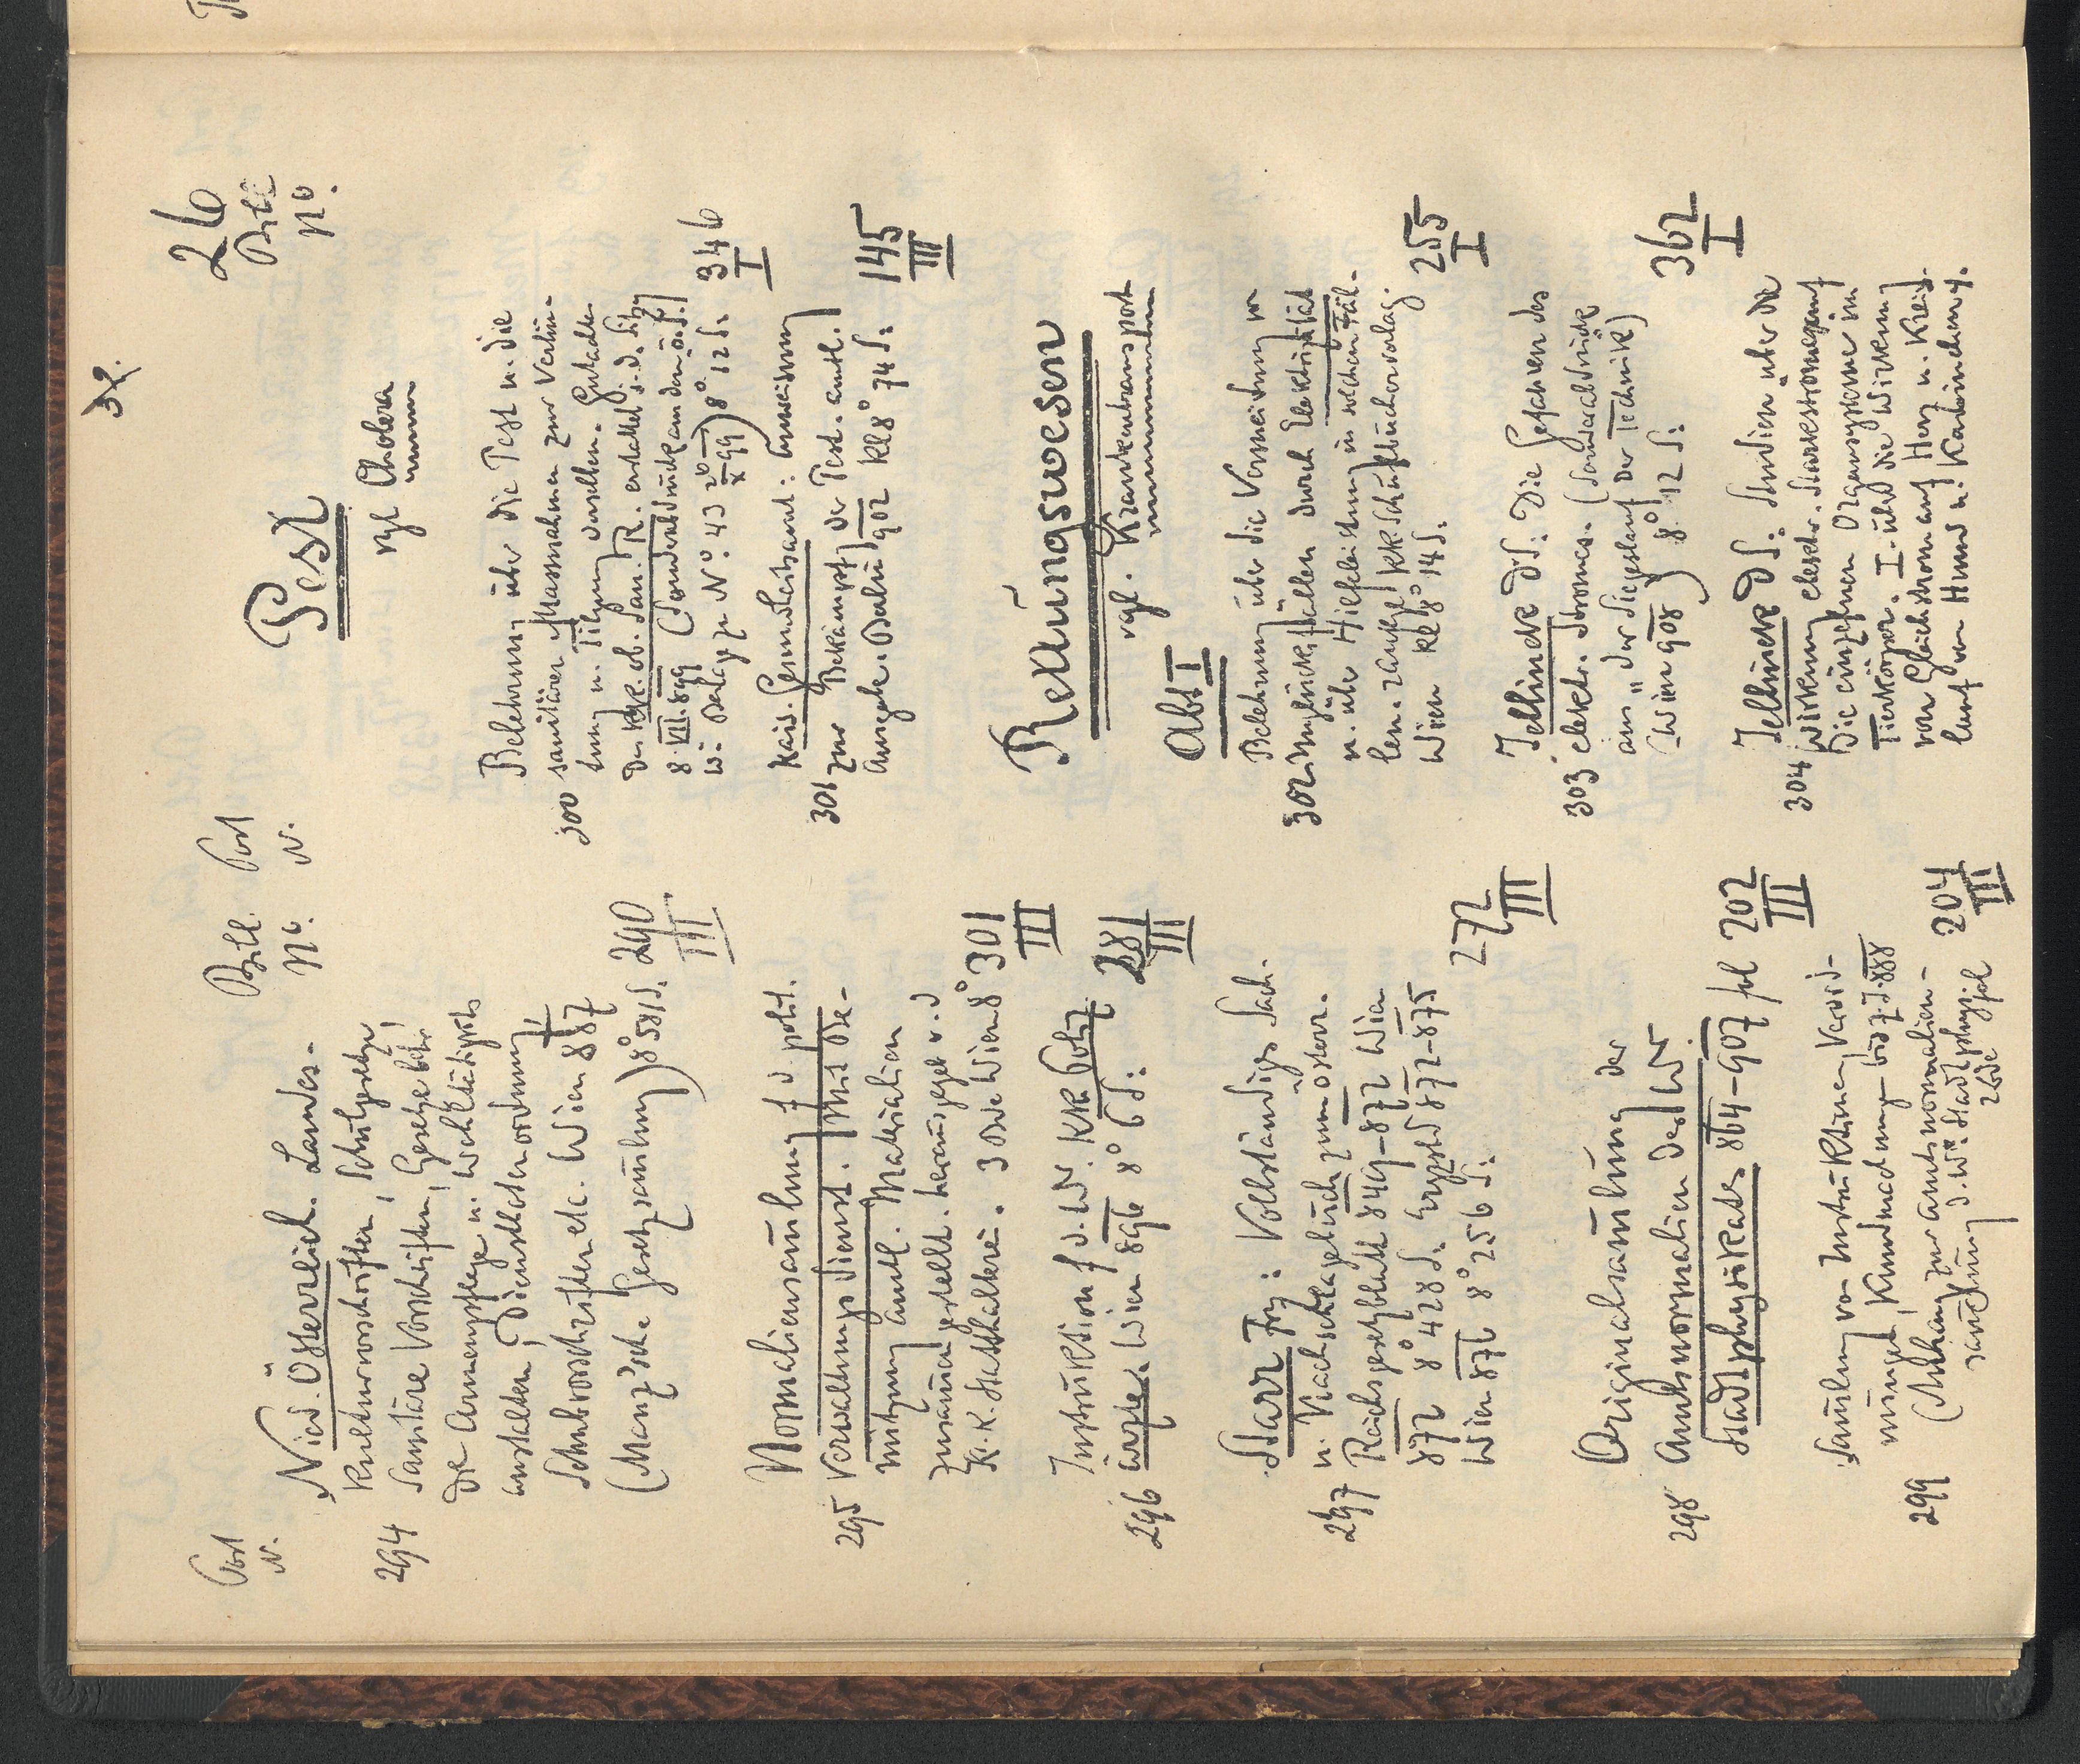 26
Post
N.
Bibl.
No.
Nied. Österreich. Landes-
Kulturvorschriften, Schulgesetze,
294 Sanitäre Vorschriften, Gesetze betr.
die Armenpflege u. Wohltätigkeits
anstalten, Dienstbotenordnung,
Schubvorschriften etc. Wien 887
(Manz'sche Gesetzsamlung) 8° 581 S. 290
III
Normaliensamlung f d. polit.
295 Verwaltungsdienst. Mit Be-
nützung amtl. Materialien
zusammengestellt. herausgeg. v. d
K. K. Statthalterei. 3 Bde Wien 8° 301
III
Instruktion f d. Wr. KK Poliz
296 ärzte. Wien 896 8° 6 S: 281
III
Starr Frz: Vollständigs Sach-
u. Nachschlagebuch zum österr.
297 Reichsgesetzblatt 849–872 Wien
872 8° 428 S. Ergzsbd 872–875
Wien 876 8° 256 S: 272
III
Originalsamlung der
298 Amtsnormalien des Wr.
Stadtphysikates 864–907 fol 202
III
Samlung von Instruktionen, Verord-
nungen, Kundmachungen bis z. J. 888
299 (Anhang zur Amtsnormalien-
samlung d. Wr. Stadtphysi
2 Bde fol 204
III
Post
N.
Bibl
No.
Pest
vgl Cholera
Belehrung über die Pest u. die
300 sanitären Massnahmen zur Verhü-
tung u. Tilgung derselben. Gutachten
des kk. ob. San. R. erstattet i. d. Sitzg
8 VII. 899 (Sonderabdrücke aus dem ö. S.
W: Beilage zu No. 43 26 X 99) 8° 12 S. 346
I
Kais. Gesundheitsamt: Anweisung
301 zur Bekämpfg der Pest. amtl.
Ausgabe. Berlin 902 Kl 8° 74 S: 145
III
Rettungswesen
vgl. Krankentransport
Abt I
Belehrung über die Vermeidung v
302 Unglücksfällen durch Elektrizität
u. über Hilfeleistung in solchen Fäl-
len. 2 Auflage kk Schulbücherverlag.
Wien Kl 8° 14 S. 255
I
Jellinek Dr S: Die Gefahren des
303 elektr. Stromes. (Sonderabdrücke
aus „Der Siegeslauf der Technik)
(Wien 908) 8° 12 S: 362
I
Jellinek Dr S. Studien über die
304 Wirkung elektr. Starkstromes auf
die einzelnen Organsysteme im
Tierkörper. I. über die Wirkung
von Gleichstrom auf Herz u. Kreis-
lauf von Hund u. Kaninchen.